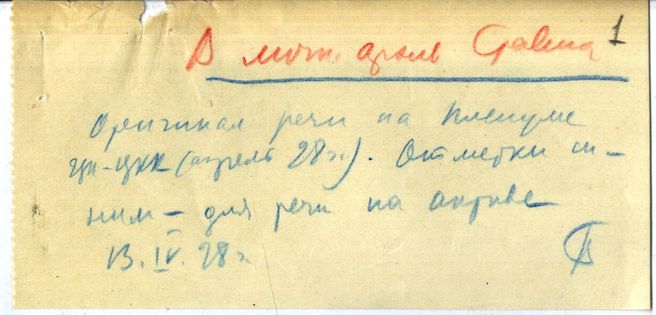 В личн. архив Сталина 1
Оригинал речи на пленуме
ЦК–ЦКК (апрель 28 г.). Отметки си-
ним – для речи на активе
13.IV.28 г.